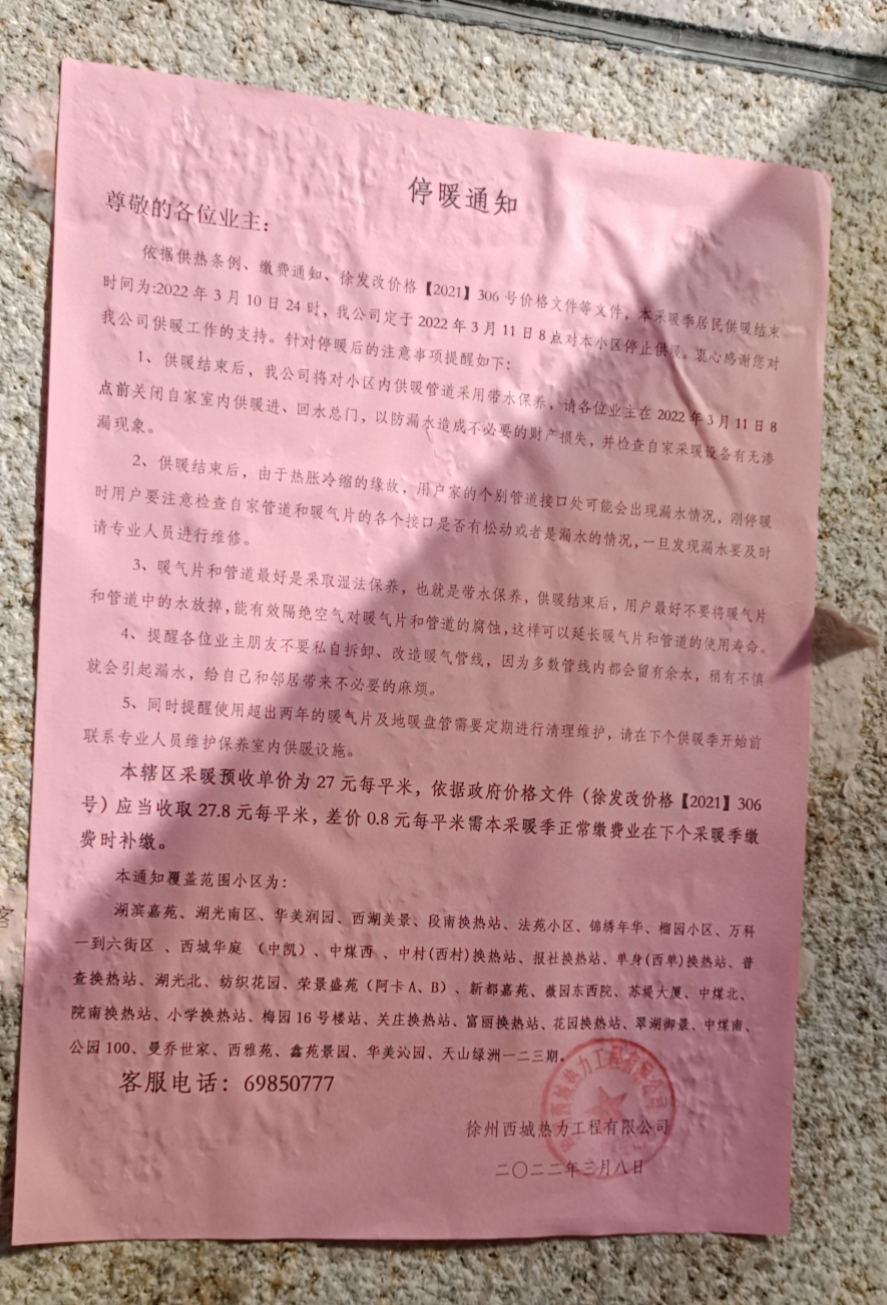 停暖通知
尊敬的各位业主：
依据供热条例、缴费通知、徐发改价格【2021】306号价格文件等文件，本采暖季居民供暖结束
时间为:2022年3月10日24时，我公司定于2022年3月11日8点对本小区停止供暖。衷心感谢您对
我公司供暖工作的支持。针对停暖后的注意事项提醒如下：
1、供暖结束后，我公司将对小区内供暖管道采用带水保养，请各位业主在2022年3月11日8
点前关闭自家室内供暖进、回水总门，以防漏水造成不必要的财产损失，并检查自家采暖设备有无渗
漏现象。
2、供暖结束后，由于热胀冷缩的缘故，用户家的个别管道接口处可能会出现漏水情况，刚停暖
时用户要注意检查自家管道和暖气片的各个接口是否有松动或者是漏水的情况，一旦发现漏水要及时
请专业人员进行维修。
3、暖气片和管道最好是采取湿法保养，也就是带水保养，供暖结束后，用户最好不要将暖气片
和管道中的水放掉，能有效隔绝空气对暖气片和管道的腐蚀，这样可以延长暖气片和管道的使用寿命。
4、提醒各位业主朋友不要私自拆卸、改造暖气管线，因为多数管线内都会留有余水，稍有不慎
就会引起漏水，给自己和邻居带来不必要的麻烦。
5、同时提醒使用超出两年的暖气片及地暖盘管需要定期进行清理维护，请在下个供暖季开始前
联系专业人员维护保养室内供暖设施。
本辖区采暖预收单价为27元每平米，依据政府价格文件（徐发改价格【2021】306
号）应当收取27.8元每平米，差价0.8元每平米需本采暖季正常缴费业在下个采暖季缴
费时补缴。
本通知覆盖范围小区为：
湖滨嘉苑、湖光南区、华美润园、西湖美景、段南换热站、法苑小区、锦绣年华、榴园小区、万科
一到六街区、西城华庭（中凯）、中煤西、中村(西村)换热站、报社换热站、单身(西单)换热站、普
查换热站、湖光北、纺织花园、荣景盛苑（阿卡A、B）、新都嘉苑、薇园东西院、苏堤大厦、中煤北、
院南换热站、小学换热站、梅园16号楼站、关庄换热站、富丽换热站、花园换热站、翠湖御景、中煤南、
公园100、曼乔世家、西雅苑、鑫苑景园、华美沁园、天山绿洲一二三期。
客服电话：69850777
徐州西城热力工程有限公司
二〇二二年三月八日